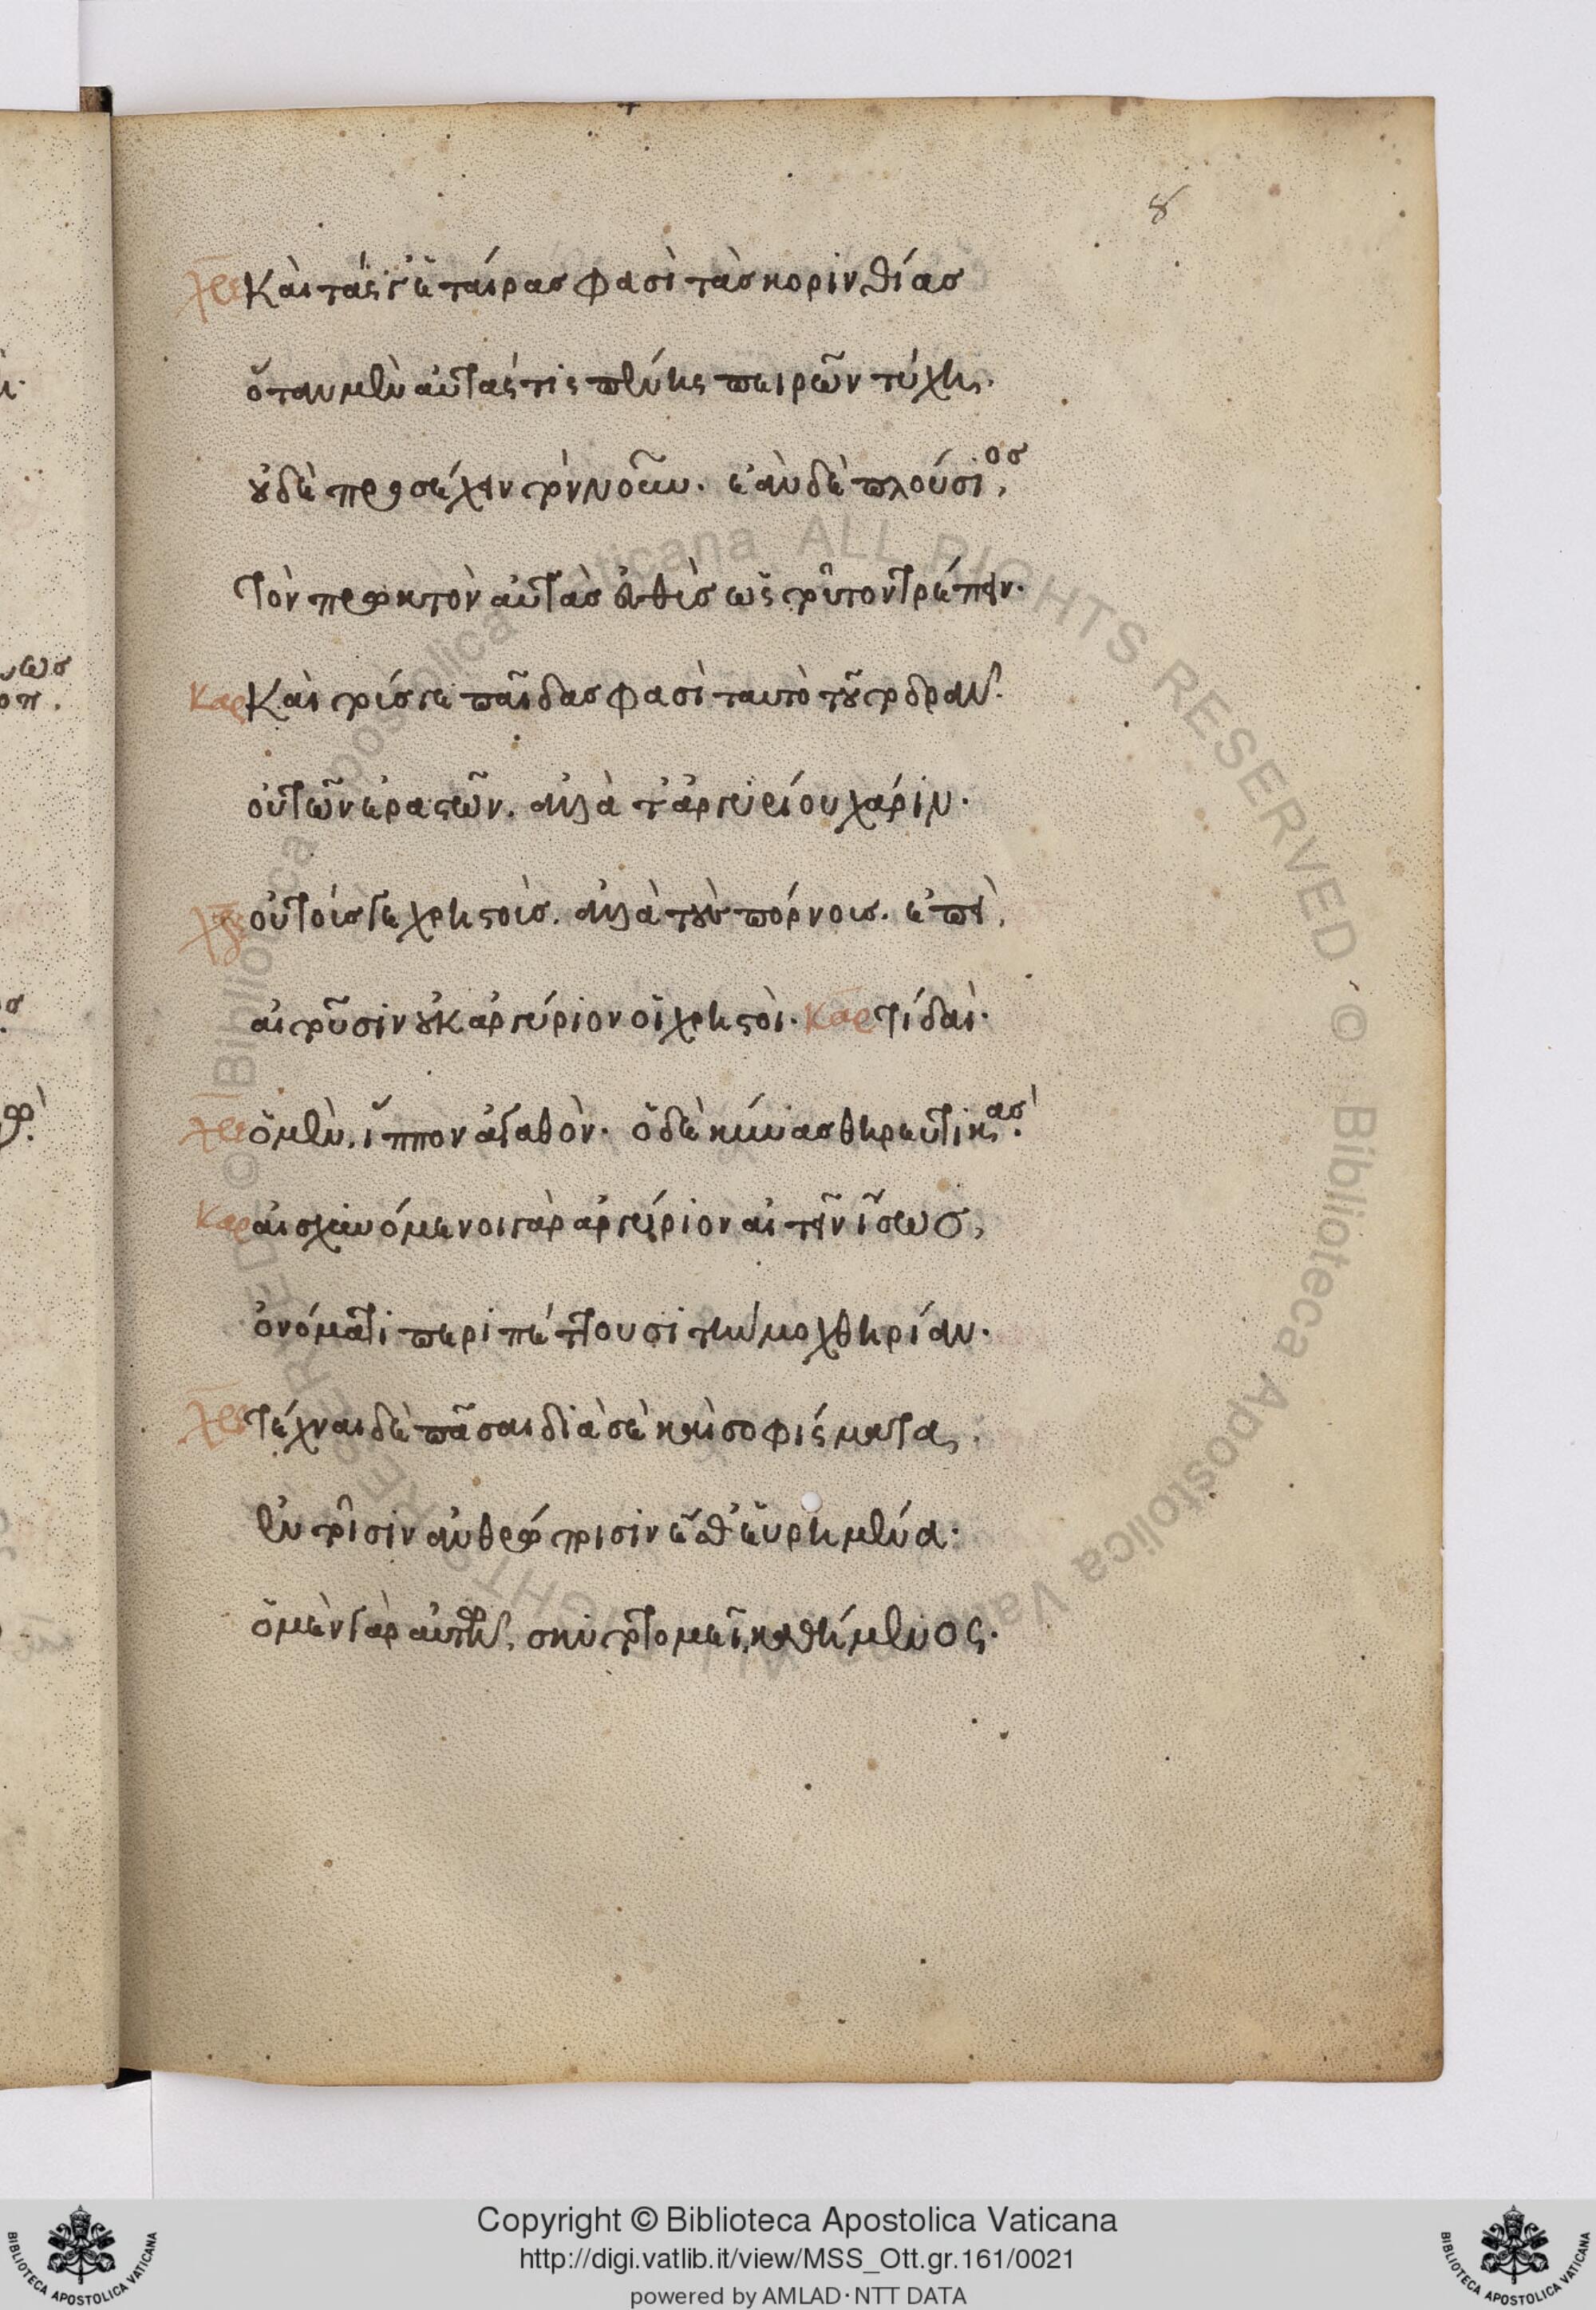 8
χρε Καὶ τάς γ' ἑταίρας φασὶ τὰς κορινθίας
ὅταν μὲν αὐτάς τις πένης πειρῶν τύχη,
οὐδὲ προσέχειν τὸν νοῦν. ἐὰν δὲ πλούσιος,
τὸν πρωκτὸν αὐτὰς εὐθὺς ὡς τοῦτον τρέπειν.
Καρ Καὶ τούς γε παῖδας φασὶ ταυτὸ τοῦτο δρᾶν.
οὐ τῶν ἐραστῶν. ἀλλὰ τἀργυρίου χάριν.
χρε οὐ τούς γε χρηστούς. ἀλλὰ τοὺς πόρνους. ἐπεὶ,
αἰτοῦσιν οὐκ ἀργύριον οἱ χρηστοὶ. Καρ τί δαὶ.
χρε ὁ μὲν, ἵππον ἀγαθὸν. ὁ δὲ κύνας θηρευτικάς.
Καρ αἰσχυνόμενοι γὰρ ἀργύριον αἰτεῖν ἴσως,
ὀνόματι περιπέττουσι τὴν μοχθηρίαν.
χρε τέχναι δὲ πᾶσαι διὰ σὲ καὶ σοφίσματα,
ἐν τοῖσιν ἀνθρώποισιν ἔσθ' εὑρημένα.
ὁ μὲν γὰρ αὐτῶν, σκυτοτομεῖ καθήμενος.
Copyright © Biblioteca Apostolica Vaticana
http://digi.vatlib.it/view/MSS_Ott.gr.161/0021
powered by AMLAD·NTT DATA